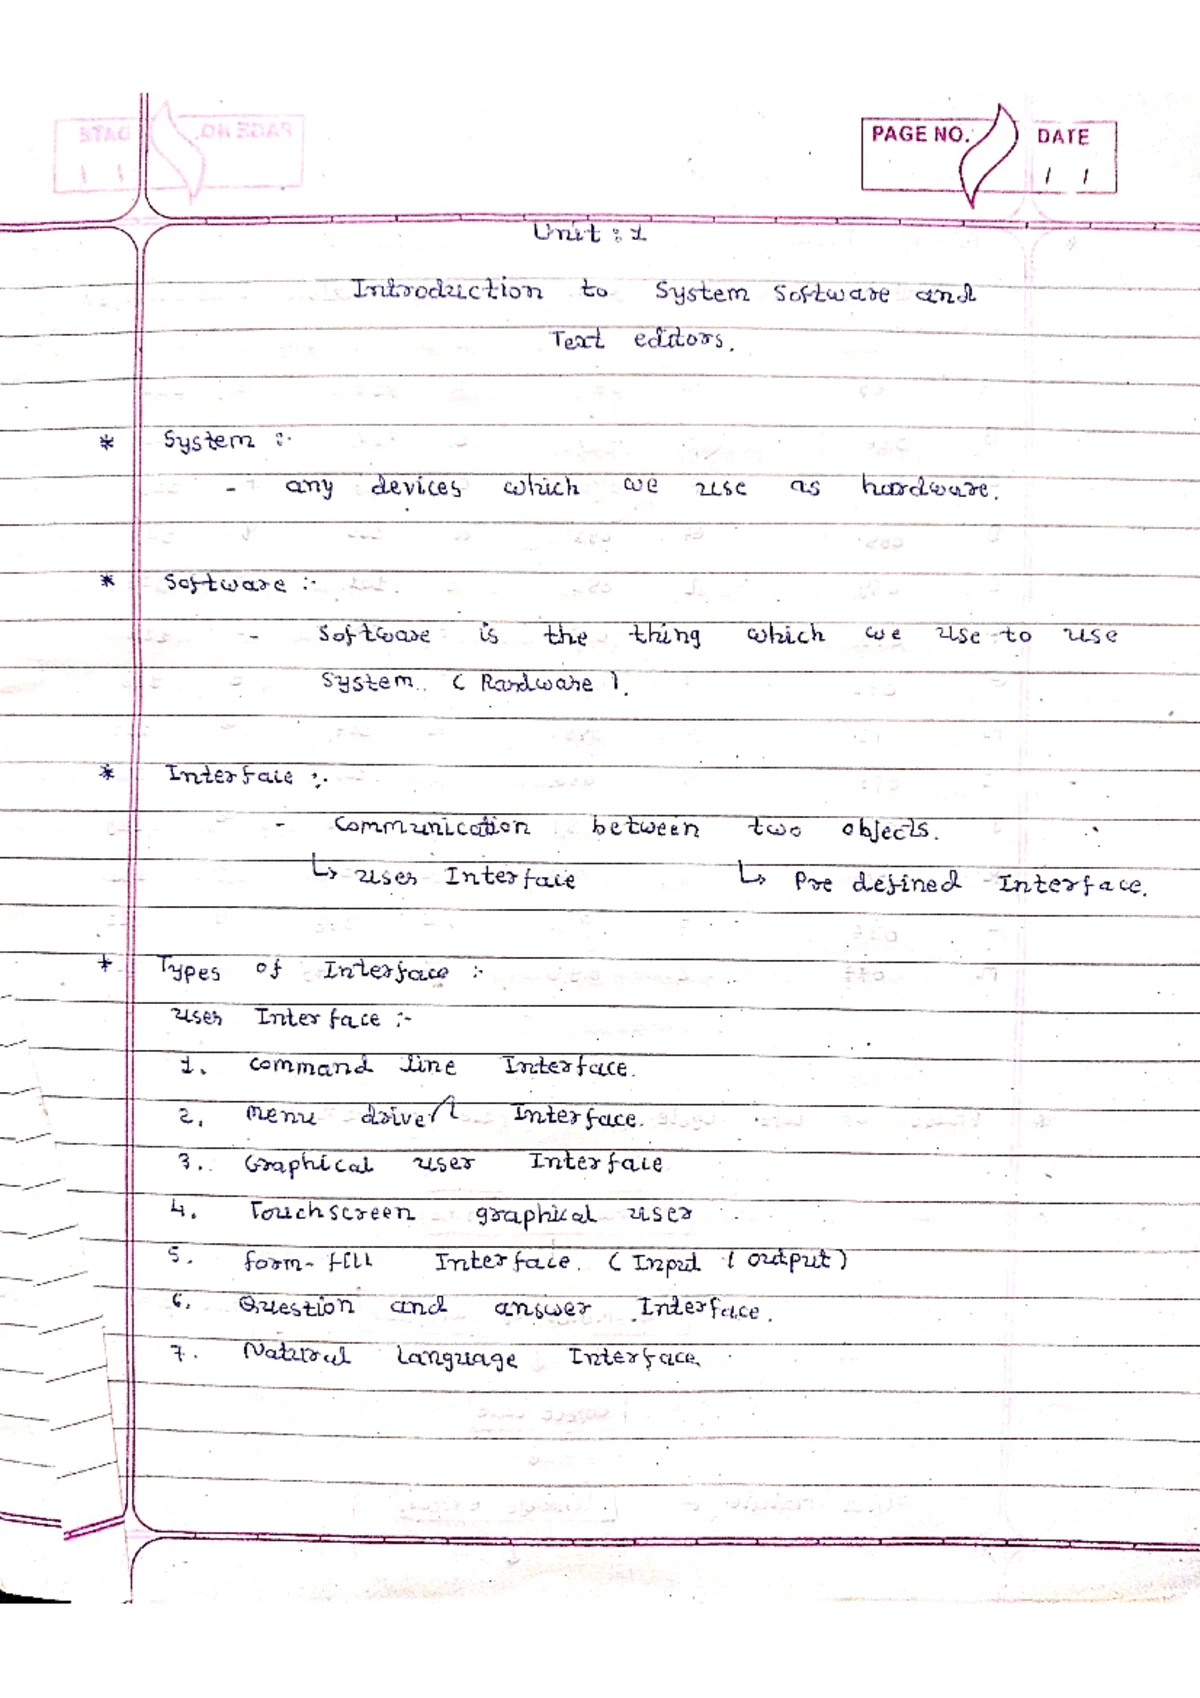 PAGE NO. DATE
/ /
Unit : 1
Introduction to System Software and
Text editors.
* System :-
- any devices which we use as hardware.
* Software :-
- Software is the thing which we use to use
System. ( Hardware ).
* Interface :-
- Communication between two objects.
↳ user Interface ↳ Pre defined Interface.
* Types of Interface :-
user Interface :-
1. command line Interface.
2. Menu driven Interface.
3. Graphical user Interface
4. Touchscreen graphical user
5. form-fill Interface. ( Input / output )
6. Question and answer Interface.
7. Natural Language Interface.